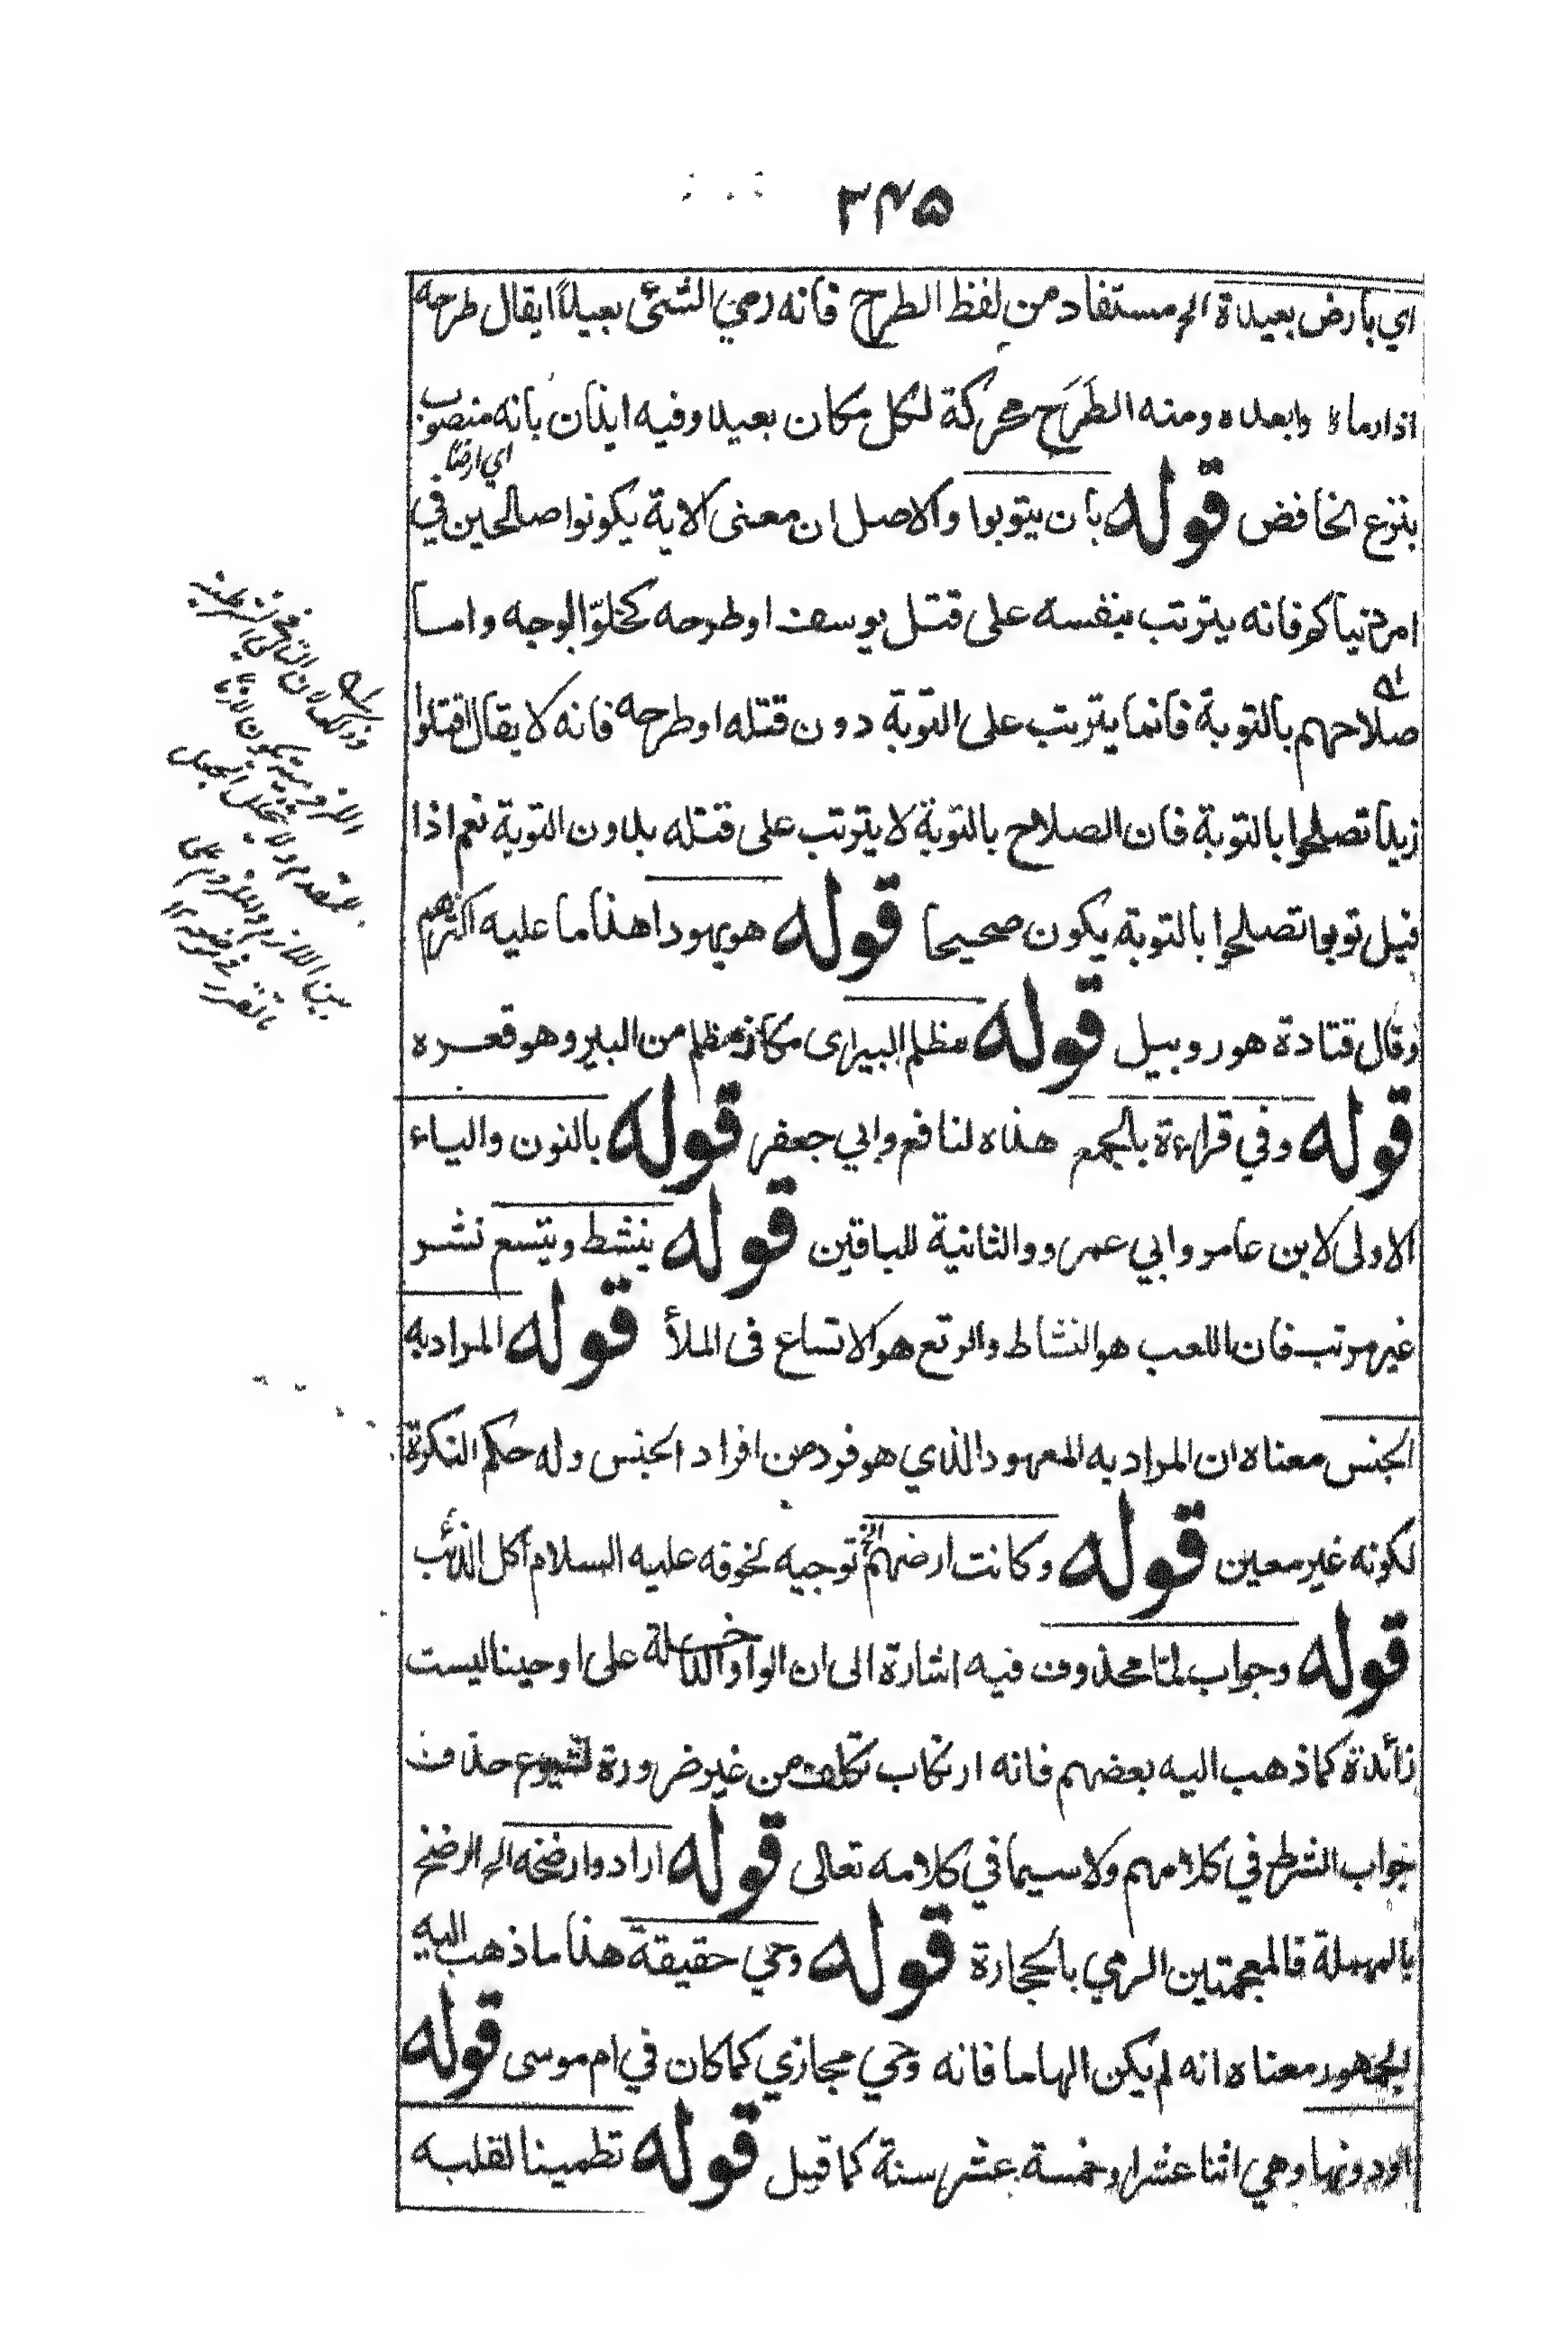 ٣٤٥
اي بارض بعيدة الخ مستفاد من لفظ الطرح فانه رمي الشئ بعيدًا يقال طرحه
اذا رماه وابعده ومنه الطَرَح محركة لكل مكان بعيد وفيه ايذان بانه منصوب
اي ارضًا
بنزع الخافض قوله بان يتوبوا والاصل ان معنى الاية يكونوا صالحين في
امر دنياكم فانه يترتب بنفسه على قتل يوسف او طرحه كخلوّ الوجه واما
صلاحهم بالتوبة فانما يترتب على التوبة دون قتله او طرحه فانه لا يقال اقتلوا
زيدا تصلحوا بالتوبة فان الصلاح بالتوبة لا يترتب على قتله بدون التوبة نعم اذا
قيل توبوا تصلحوا بالتوبة يكون صحيحا قوله هو يهودا هذا ما عليه اكثرهم
وقال قتادة هو روبيل قوله مظلم البير اى مكان مظلم من البير وهو قعره
قوله وفي قراءة بالجمع هذه لنافع وابي جعفر قوله بالنون والياء
الاولى لابن عامر وابي عمرو والثانية للباقين قوله ينشط ويتسع نشر
غير مرتب فان اللعب هو النشاط والرتع هو الاتساع فى الملأ قوله المراد به
الجنس معناه ان المراد به المعهود الذي هو فرد من افراد الجنس وله حكم النكرة
لكونه غير معين قوله وكانت ارضهم الخ توجيه لخوفه عليه السلام اكل الذئب
قوله وجواب لمّا محذوف فيه اشارة الى ان الواو الداخلة على اوحينا ليست
زائدة كما ذهب اليه بعضهم فانه ارتكاب تكلف من غير ضرورة لشيوع حذف
جواب الشرط في كلامهم ولا سيما في كلامه تعالى قوله ارادوا رضخه الخ الرضخ
بالمهملة فالمعجمتين الرمي بالحجارة قوله وحي حقيقة هذا ما ذهب اليه
الجمهور معناه انه لم يكن الهاما فانه وحي مجازي كما كان في ام موسى قوله
او دونها وهي اثنا عشر او خمسة عشر سنة كما قيل قوله تطمينا لقلبه